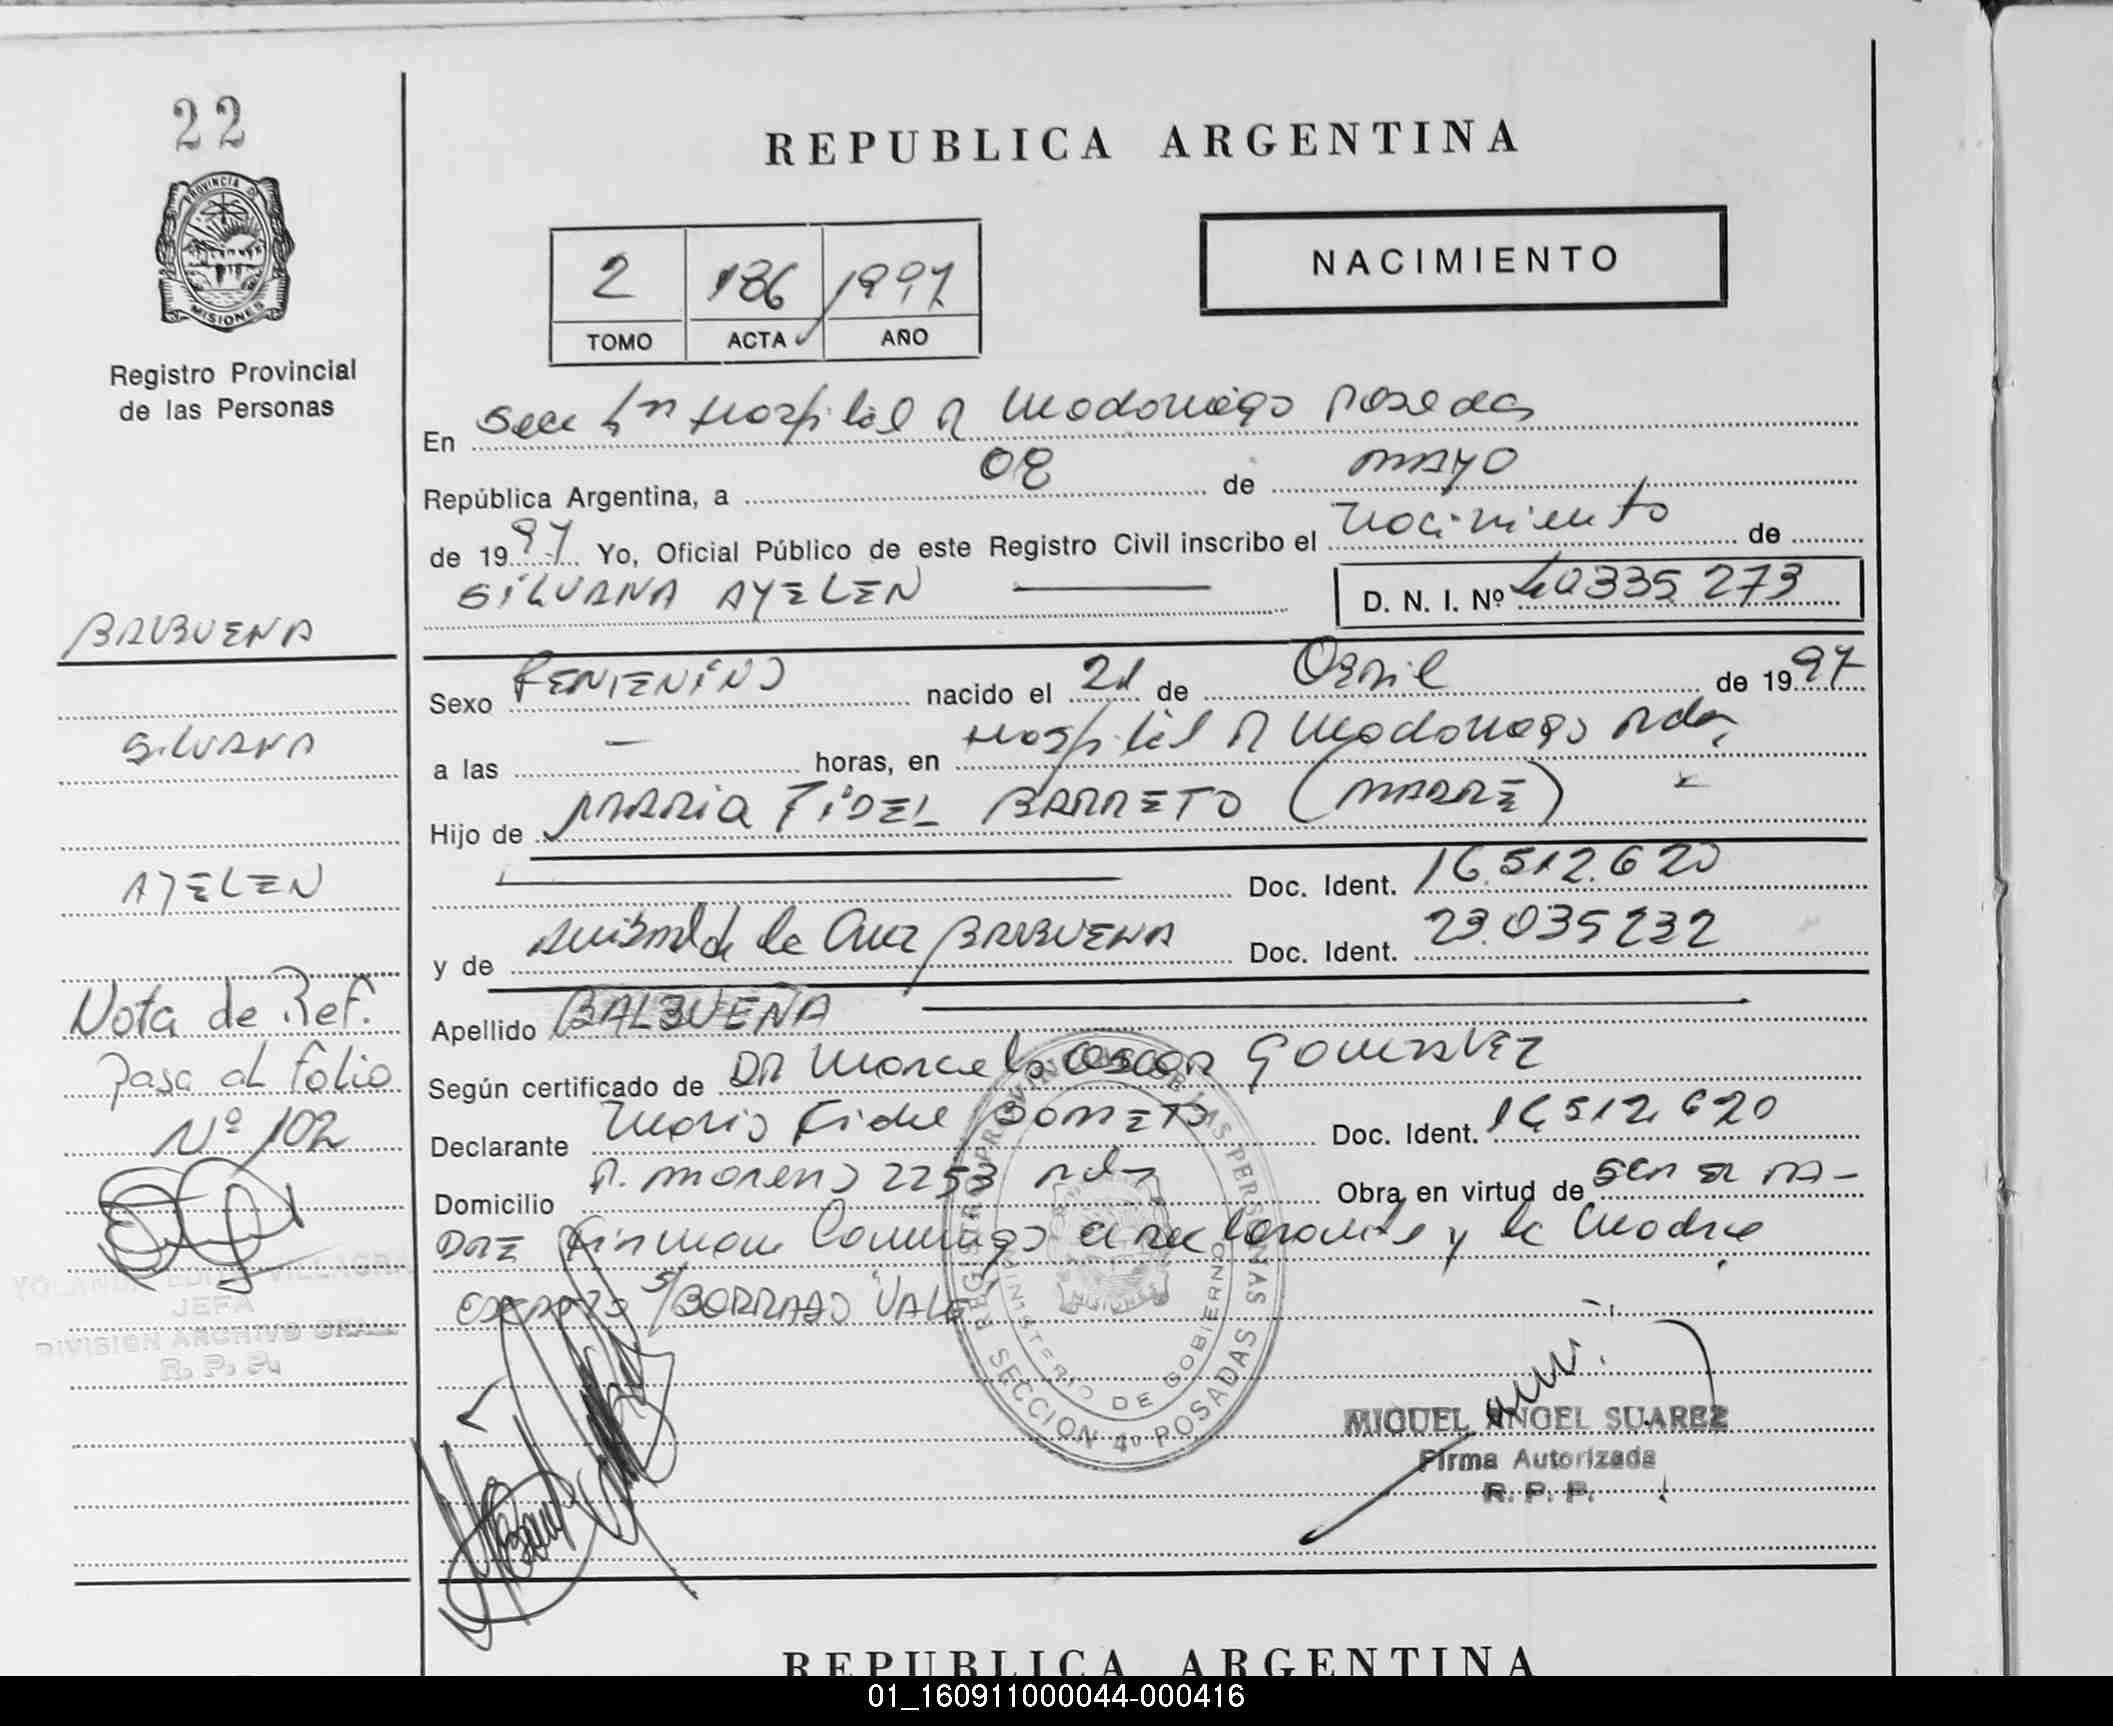 22
PROVINCIA DE
MISIONES
Registro Provincial
de las Personas
REPUBLICA ARGENTINA
NACIMIENTO
2 186 1997
TOMO ACTA AÑO
En Secc Hospital R Madariaga Posadas
República Argentina, a 08 de MAYO
de 1997 Yo, Oficial Público de este Registro Civil inscribo el Nacimiento de
SILVANA AYELEN
D. N. I. Nº 40335 273
BALBUENA
SILVANA
AYELEN
Nota de Ref.
pasa al folio
Nº 102
YOLANDA EDITH VILLAGRA
JEFA
DIVISION ARCHIVO GRAL.
R. P. P.
Sexo FEMENINO nacido el 21 de Abril de 1997
a las — horas, en Hospital R Madariaga Pdas
Hijo de MARIA FIDEL BARRETO (MADRE)
Doc. Ident. 16.512.620
y de de la Cruz BALBUENA Doc. Ident. 23.035232
Apellido BALBUENA
Según certificado de DR Marcelo Oscar GONZALEZ
Declarante Maria Fidel BARRETO Doc. Ident. 16 512 620
Domicilio P. moreno 2253 Pdas Obra en virtud de SER EL PA-
DRE Firman Conmigo el declarante y la Madre
S/BORRADO VALE
REGISTRO PROVINCIAL DE LAS PERSONAS
MINISTERIO DE GOBIERNO
SECCION 4º POSADAS
MIGUEL ANGEL SUAREZ
Firma Autorizada
R. P. P.
REPUBLICA ARGENTINA
01_160911000044-000416